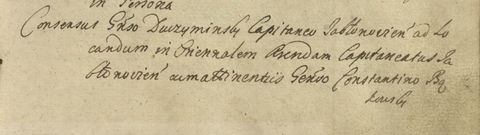 in Persona
Consensus Gnso Duczyminsky Capitaneo Jabłonovien ad Lo
candum in Triennalem Arendam Capitaneatus Ja
błonovien cum attinentiis Genso Constantino